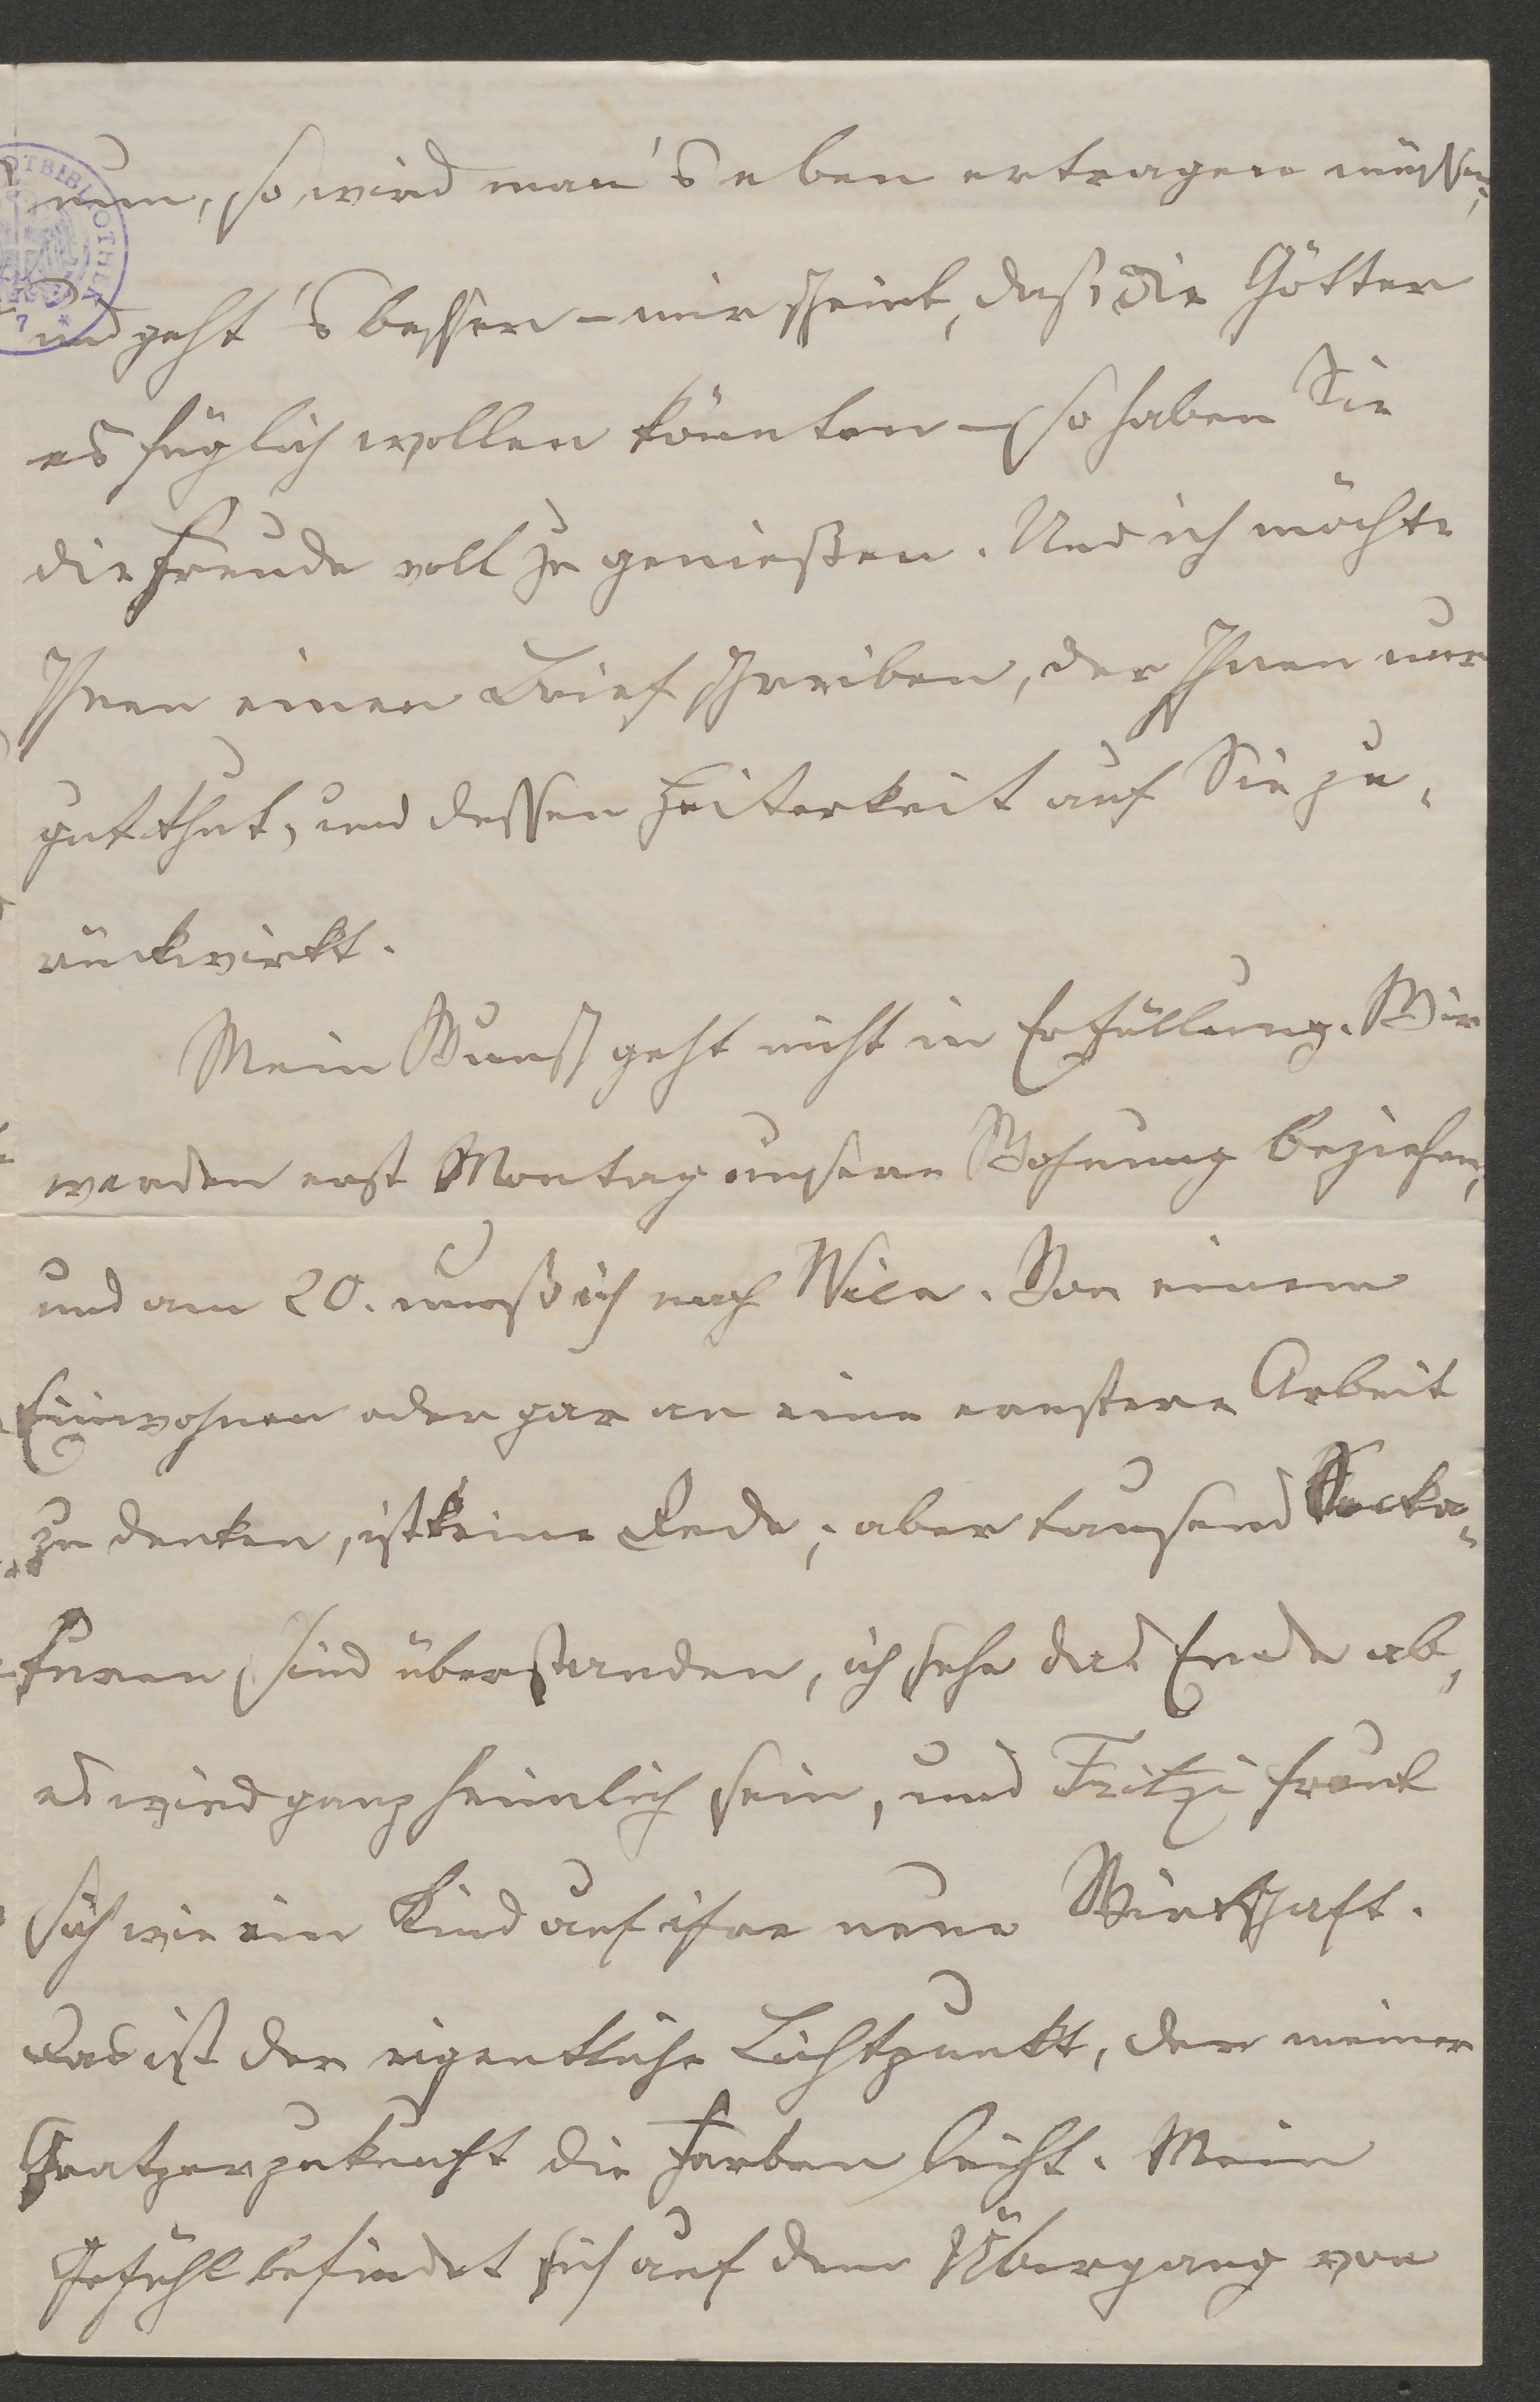 nun, so wird man's eben ertragen müssen;
und geht's besser – mir scheint, daß die Götter
es füglich wollen könnten – so haben Sie
die Freude voll zu genießen. Und ich möchte
Ihnen einen Brief schreiben, der Ihnen nur
gut thut, und dessen Heiterkeit auf Sie zu-
rückwirkt.
Mein Wunsch geht nicht in Erfüllung. Wir
werden erst Montag unsere Wohnung beziehen,
und am 20. muß ich nach Wien. Von einem
Einwohnen oder gar an eine ernstere Arbeit
zu denken, ist keine Rede; aber tausend Secka-
turen sind überstanden, ich sehe das Ende ab,
es wird ganz heimlich sein, und Fritzi freut
sich wie ein Kind auf ihre neue Wirtschaft.
Das ist der eigentliche Lichtpunkt, der meiner
Gratzerzukunft die Farben leiht. Mein
Gefühl befindet sich auf dem Übergang von
OTBIBLIOTHEK
7 *